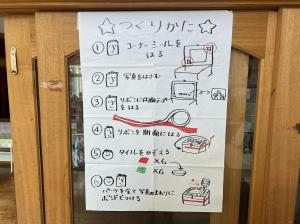 ☆つくりかた☆
① コーナーシールを
はる
② 写真をはさむ
③ リボンに両面テープ
をはる
④ リボンを側面にはる
⑤ タイルをかぞえる
×6
×6
⑥ パーツを全て写真のまわりに
ボンドでつける